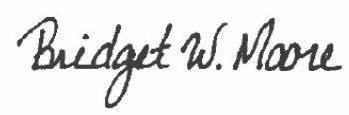 Bridget W. Moore